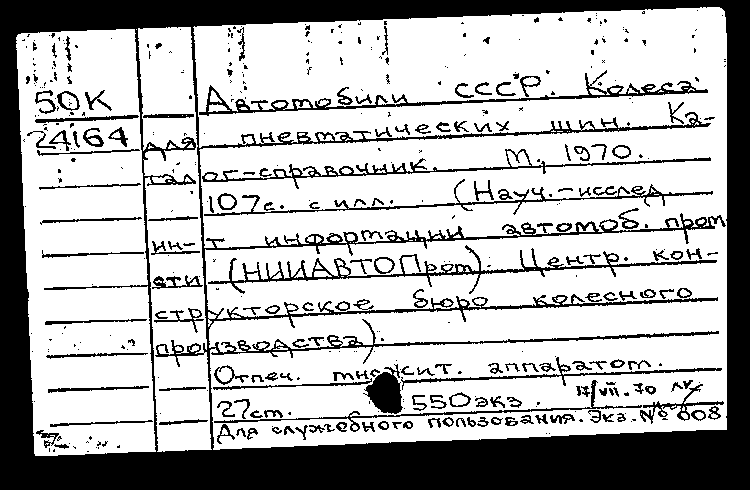 50К Автомобили СССР. Колеса
24164 для пневматических шин. Ка-
талог-справочник. М., 1970.
107с. с илл. (Науч.-исслед.
ин-т информации автомоб. пром
сти (НИИАВТОПром). Центр. кон-
структорское бюро колесного
производства).
Отпеч. множит. аппаратом.
27см. 550экз. 17/VII.70
Для служебного пользования. Экз. № 808